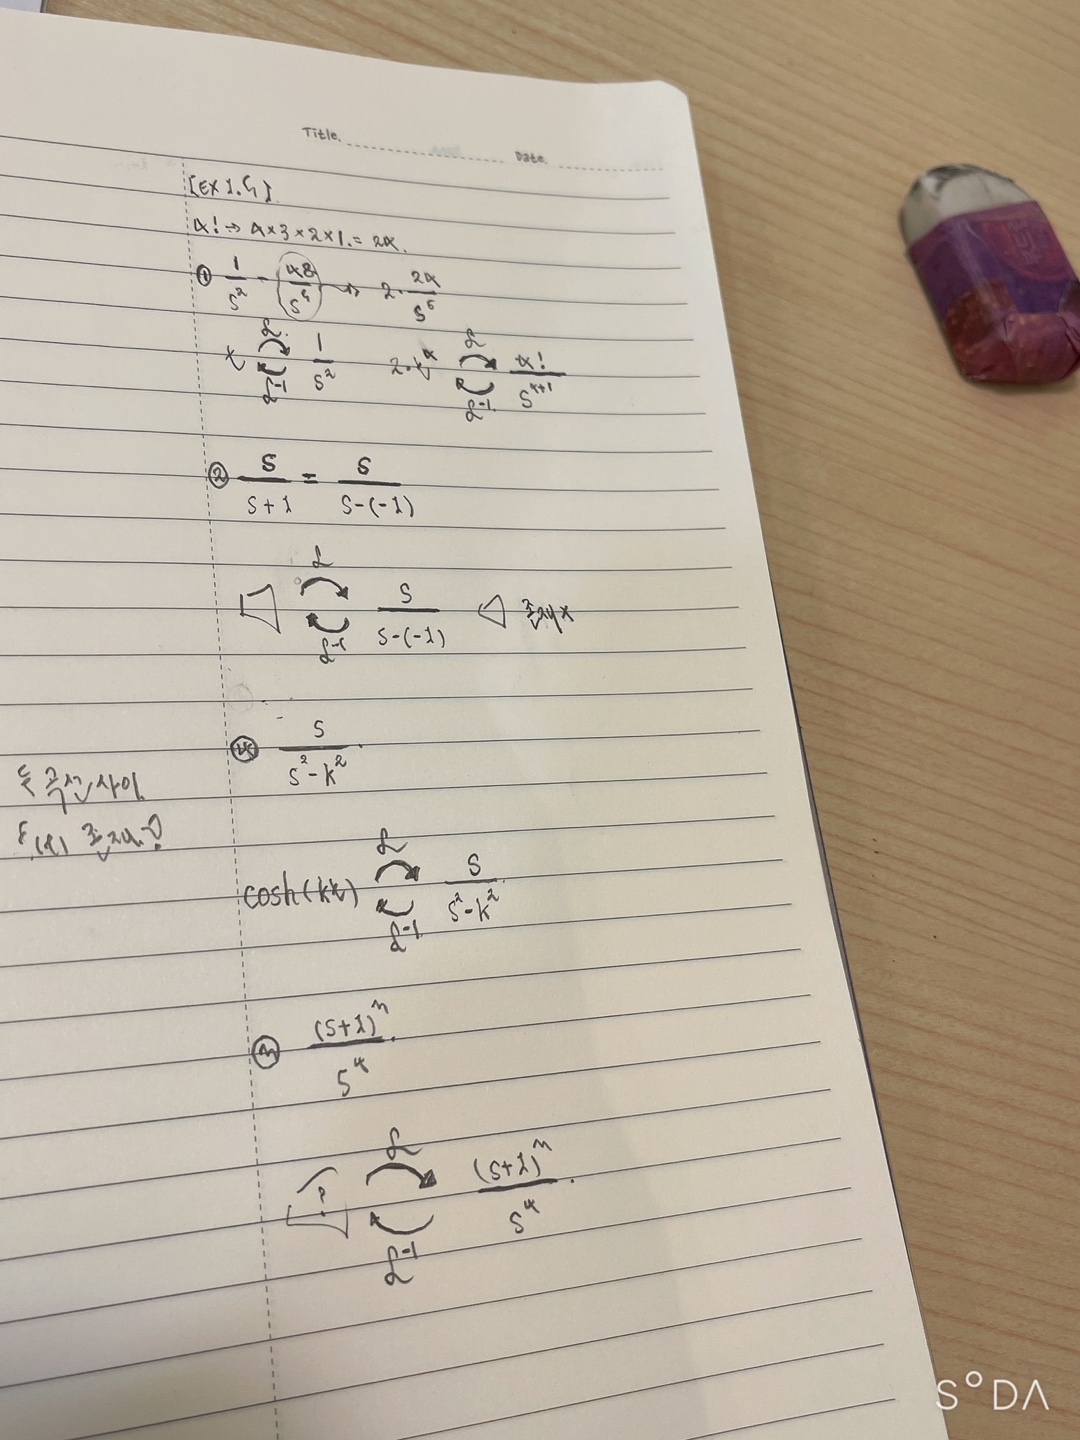 Title.
Date.
[EX 1.5].
4! → 4×3×2×1. = 24.
① 1/s² - 48/s⁵ → 2·24/s⁵
t ℒ ℒ⁻¹ 1/s² 2·t⁴ ℒ ℒ⁻¹ 4!/s⁴⁺¹
② s/(s+1) = s/(s-(-1))
ℒ ℒ⁻¹ s/(s-(-1)) 존재x
④ s/(s²-k²)
곡선 사이
존재?
cosh(kt) ℒ ℒ⁻¹ s/(s²-k²)
③ (s+1)³/s⁴
? ℒ ℒ⁻¹ (s+1)³/s⁴
SODA